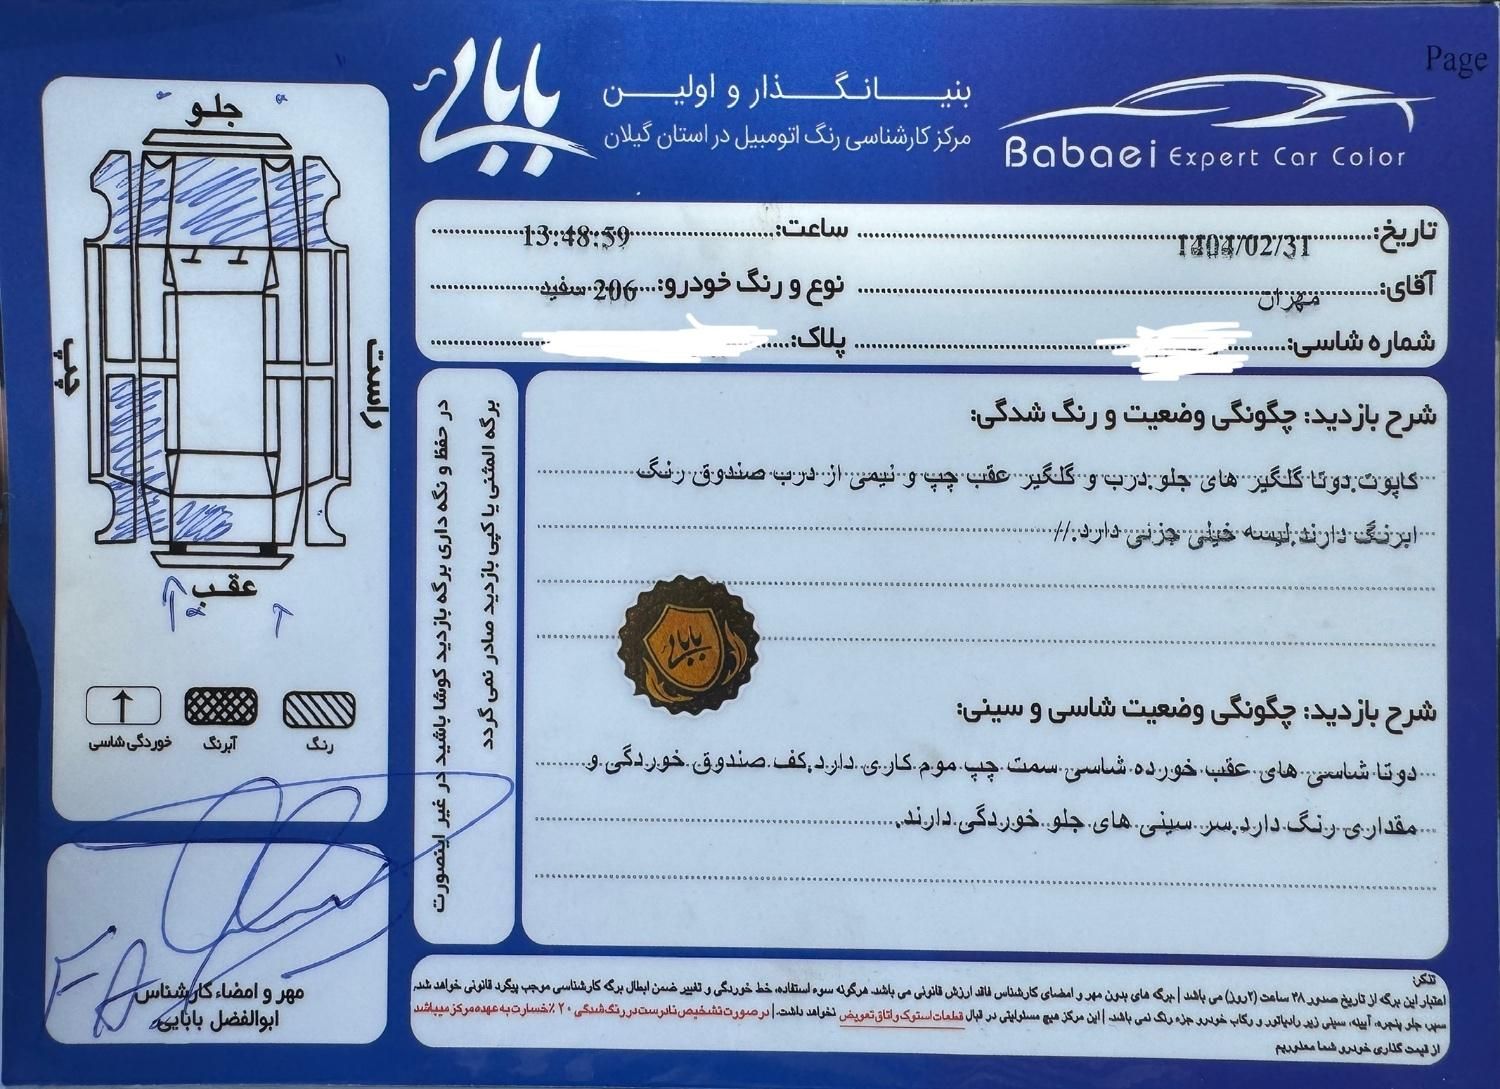 Page
بنیانگذار و اولین
مرکز کارشناسی رنگ اتومبیل در استان گیلان
بابایی
Babaei Expert Car Color
تاریخ: 1404/02/31 ساعت: 13:48:59
آقای: مهران نوع و رنگ خودرو: 206 سفید
شماره شاسی: پلاک:
شرح بازدید: چگونگی وضعیت و رنگ شدگی:
کاپوت.دوتا گلگیر های جلو.درب و گلگیر عقب چپ و نیمی از درب صندوق رنگ
ابرنگ دارند.لیسه خیلی جزئی دارد.//
بابایی
شرح بازدید: چگونگی وضعیت شاسی و سینی:
دوتا شاسی های عقب خورده شاسی سمت چپ موم کاری دارد.کف صندوق خوردگی و
مقداری رنگ دارد.سر سینی های جلو خوردگی دارند.
در حفظ و نگه داری برگه بازدید کوشا باشید در غیر اینصورت
برگه المثنی یا کپی بازدید صادر نمی گردد
جلو
راست
چپ
عقب
رنگ
آبرنگ
خوردگی شاسی
مهر و امضاء کارشناس
ابوالفضل بابایی
تذکر:
اعتبار این برگه از تاریخ صدور ۴۸ ساعت (۲روز) می باشد | برگه های بدون مهر و امضای کارشناس فاقد ارزش قانونی می باشد. هرگونه سوء استفاده، خط خوردگی و تغییر ضمن ابطال برگه کارشناسی موجب پیگرد قانونی خواهد شد.
سپر، جلو پنجره، آیینه، سینی زیر رادیاتور و رکاب خودرو جزء رنگ نمی باشد. | این مرکز هیچ مسئولیتی در قبال قطعات استوک و اتاق تعویض نخواهد داشت. | در صورت تشخیص نادرست در رنگ شدگی ۲۰٪ خسارت به عهده مرکز میباشد
از قیمت گذاری خودرو شما معذوریم